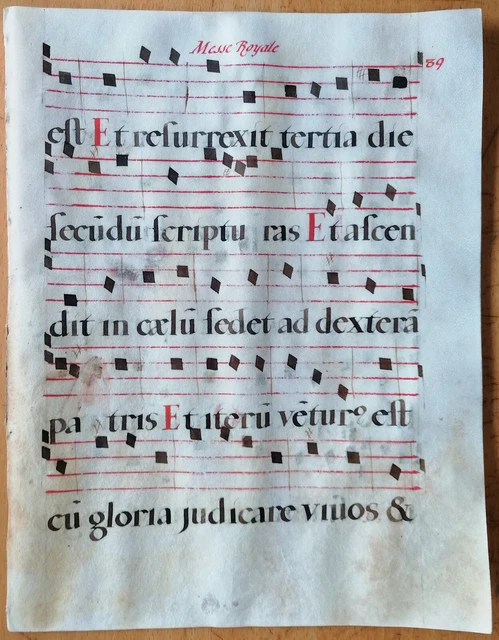 Messe Royale
89
eſt Et reſurrexit tertia die
ſecūdū ſcriptu ras Et aſcen
dit in cælū ſedet ad dexterā
pa tris Et iterū vētur⁹ eſt
cū gloria judicare vivos &